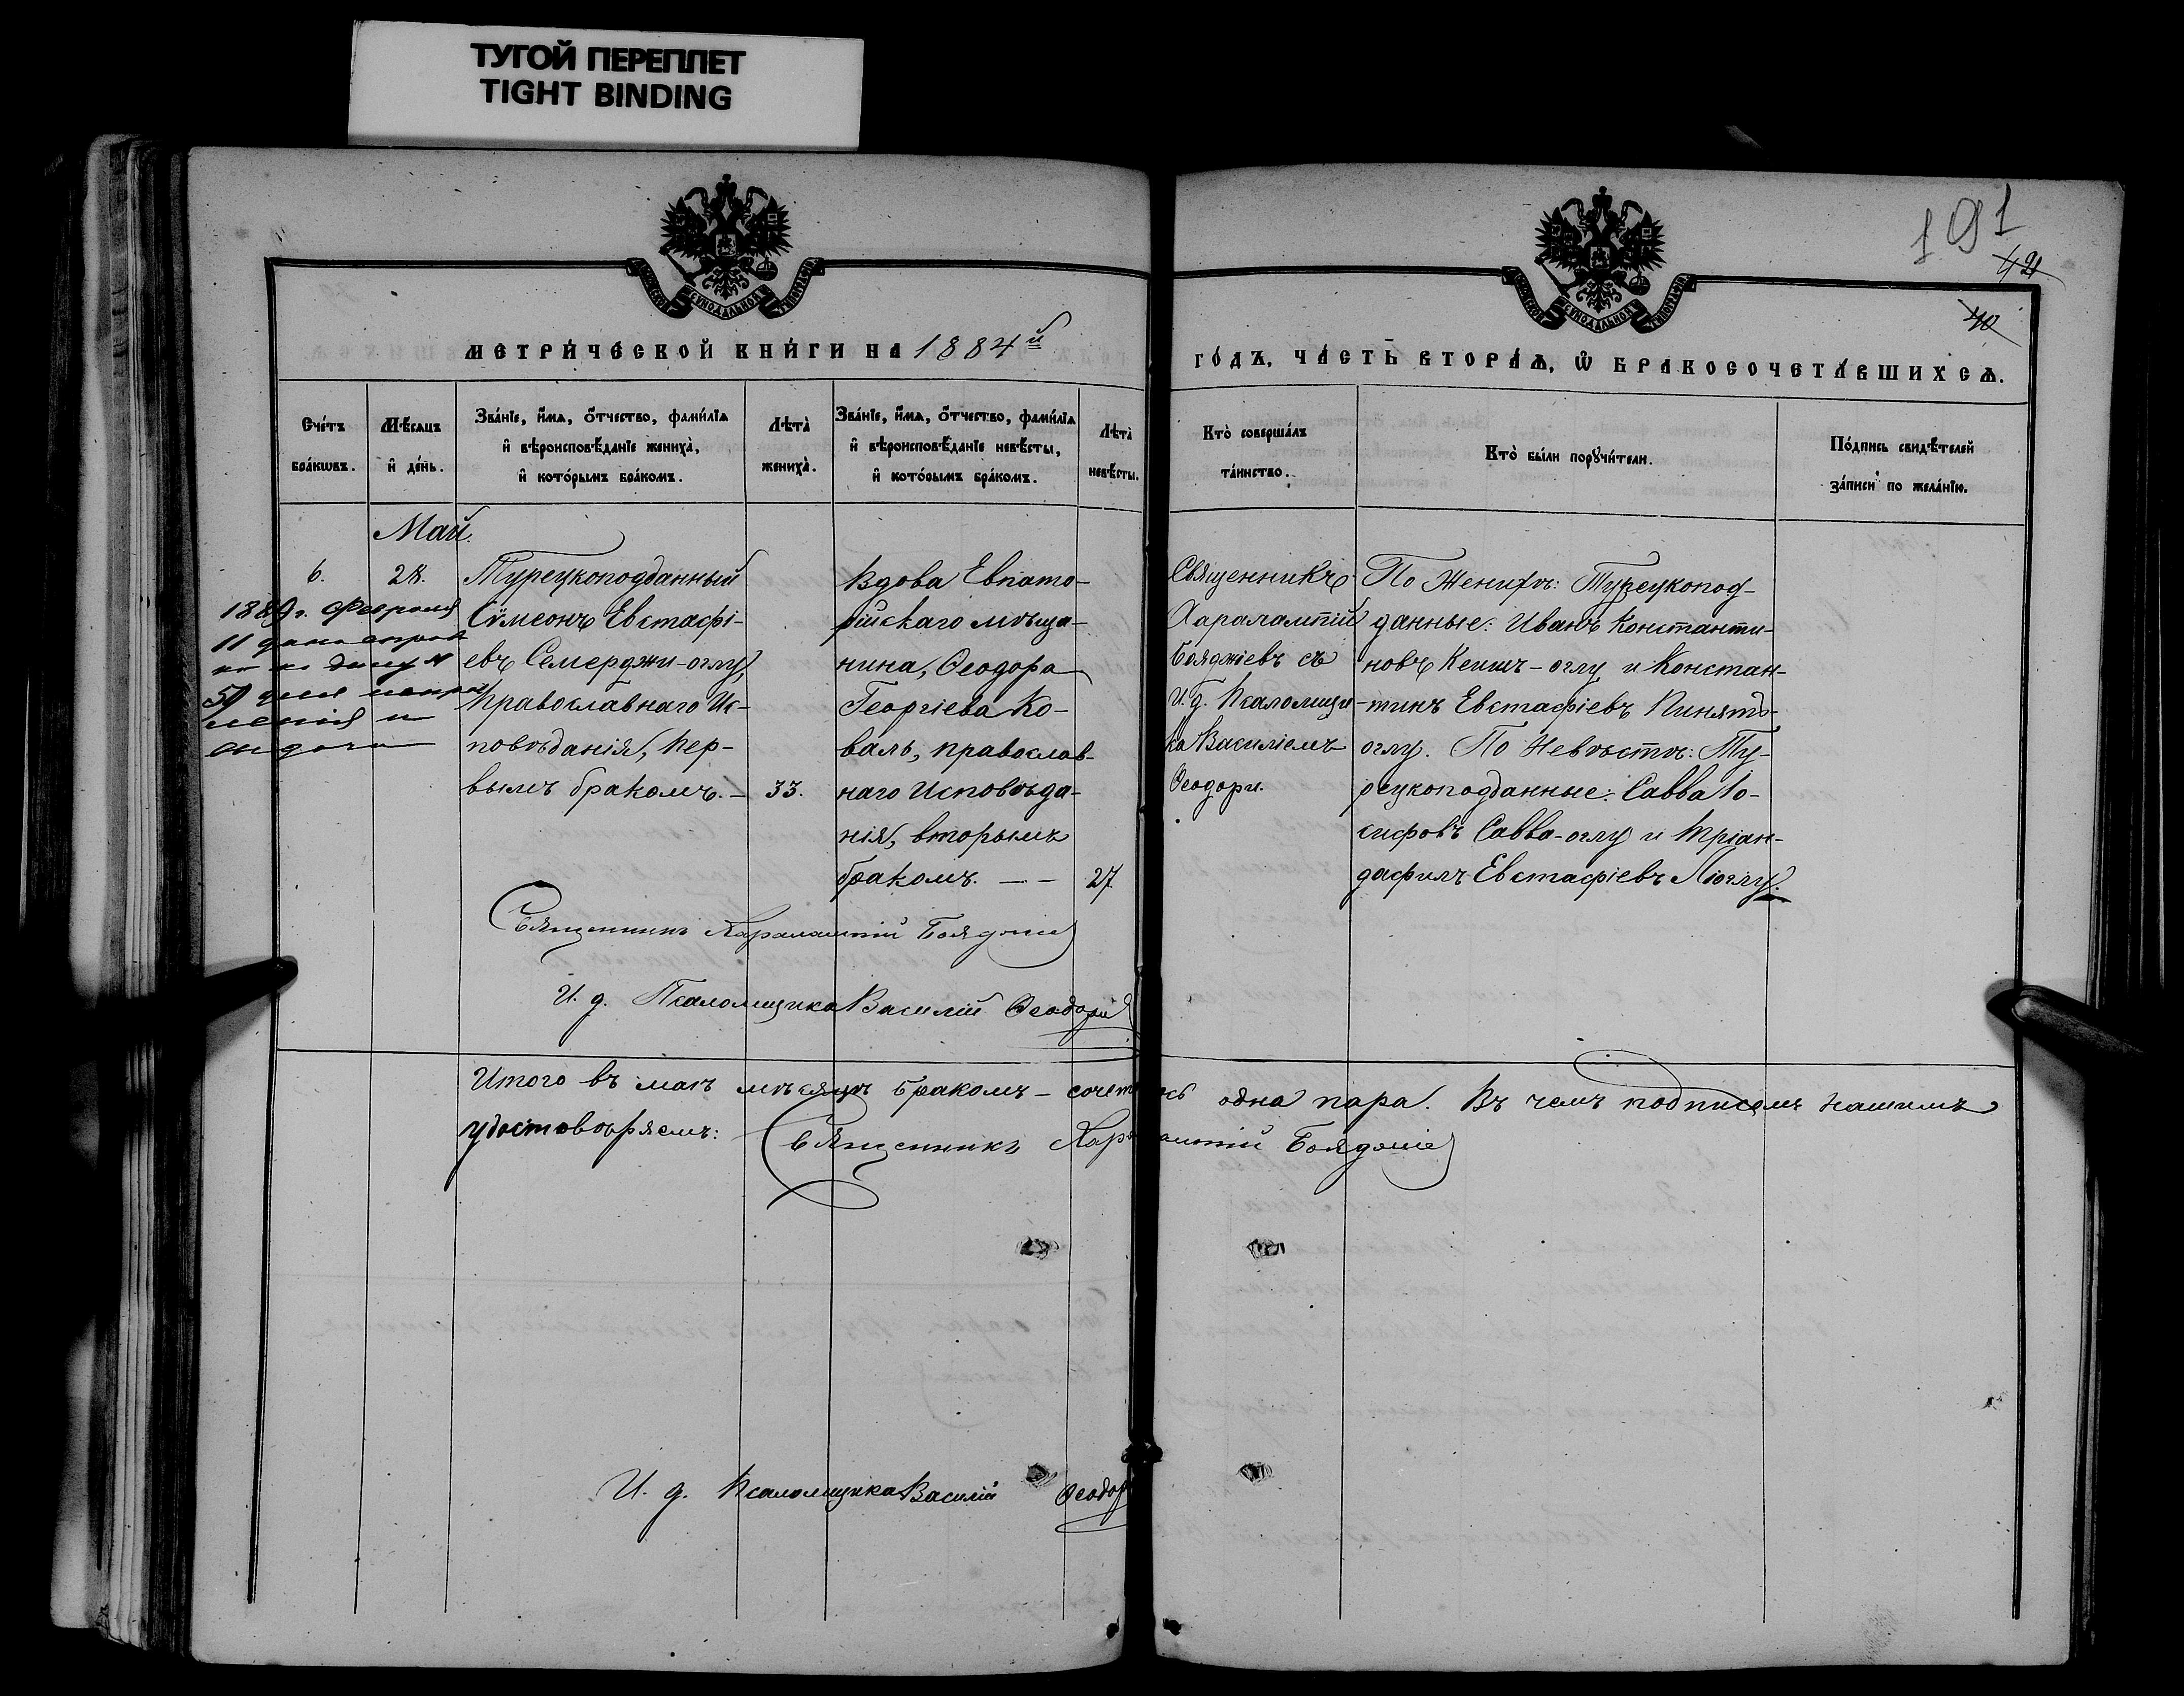 ТУГОЙ ПЕРЕПЛЕТ
TIGHT BINDING
191
42
40
МЕТРИ́ЧЕСКОЙ КНИ́ГИ НА 1884й
ГО́ДЪ, ЧА́СТЬ ВТОРА́Я, Ѡ БРАКОСОЧЕТА́ВШИХСЯ.
Сче́тъ
бра́кѡвъ.
Мѣ́сяцъ
и҆ де́нь.
Зва́нїе, и҆́мя, ѻ҆́тчество, фами́лїя
и҆ вѣроисповѣ́данїе жениха̀,
и҆ кото́рымъ бра́комъ.
Лѣ́та̀
жениха̀.
Зва́нїе, и҆́мя, ѻ҆́тчество, фами́лїя
и҆ вѣроисповѣ́данїе невѣ́сты,
и҆ кото́рымъ бра́комъ.
Лѣ́та̀
невѣ́сты.
Кто̀ соверша́лъ
та́инство.
Кто̀ бы́ли порꙋчи́тели.
По́дпись свидѣ́телей
за́писи по жела́нїю.
Май.
6.
28.
1889 г. Февраля
11 дана справ
Турецкоподданный
Сѵмеонъ Евстафі-
евъ Семерджи-оглу,
православнаго Ис-
повѣданія, пер-
вымъ бракомъ. —
33.
Вдова Евпато-
рійскаго мѣща-
нина, Ѳеодора
Георгіева Ко-
валь, православ-
наго Исповѣда-
нія, вторымъ
бракомъ. — —
27.
Священникъ
Харалампій
Бояджіевъ съ
И. д. Псаломщи-
ка Василіемъ
Ѳеодори.
По Женихѣ: Турецкопод-
данные: Иванъ Константи-
новъ Кешишъ-оглу и Констан-
тинъ Евстафіевъ
оглу. По Невѣстѣ: Ту-
рецкоподданные: Савва Іо-
сифовъ Савва-оглу и Тріан-
дафилъ Евстафіевъ
Священникъ Харалампій Бояджіе
И. д. Псаломщика Василій Ѳеодори
Итого въ маѣ мѣсяцѣ бракомъ – сочет сь одна пара. Въ чемъ подписомъ нашимъ
удостовѣряемъ: Священникъ Хар ампій Бояджіе
И. д. Псаломщика Василій Ѳеодор